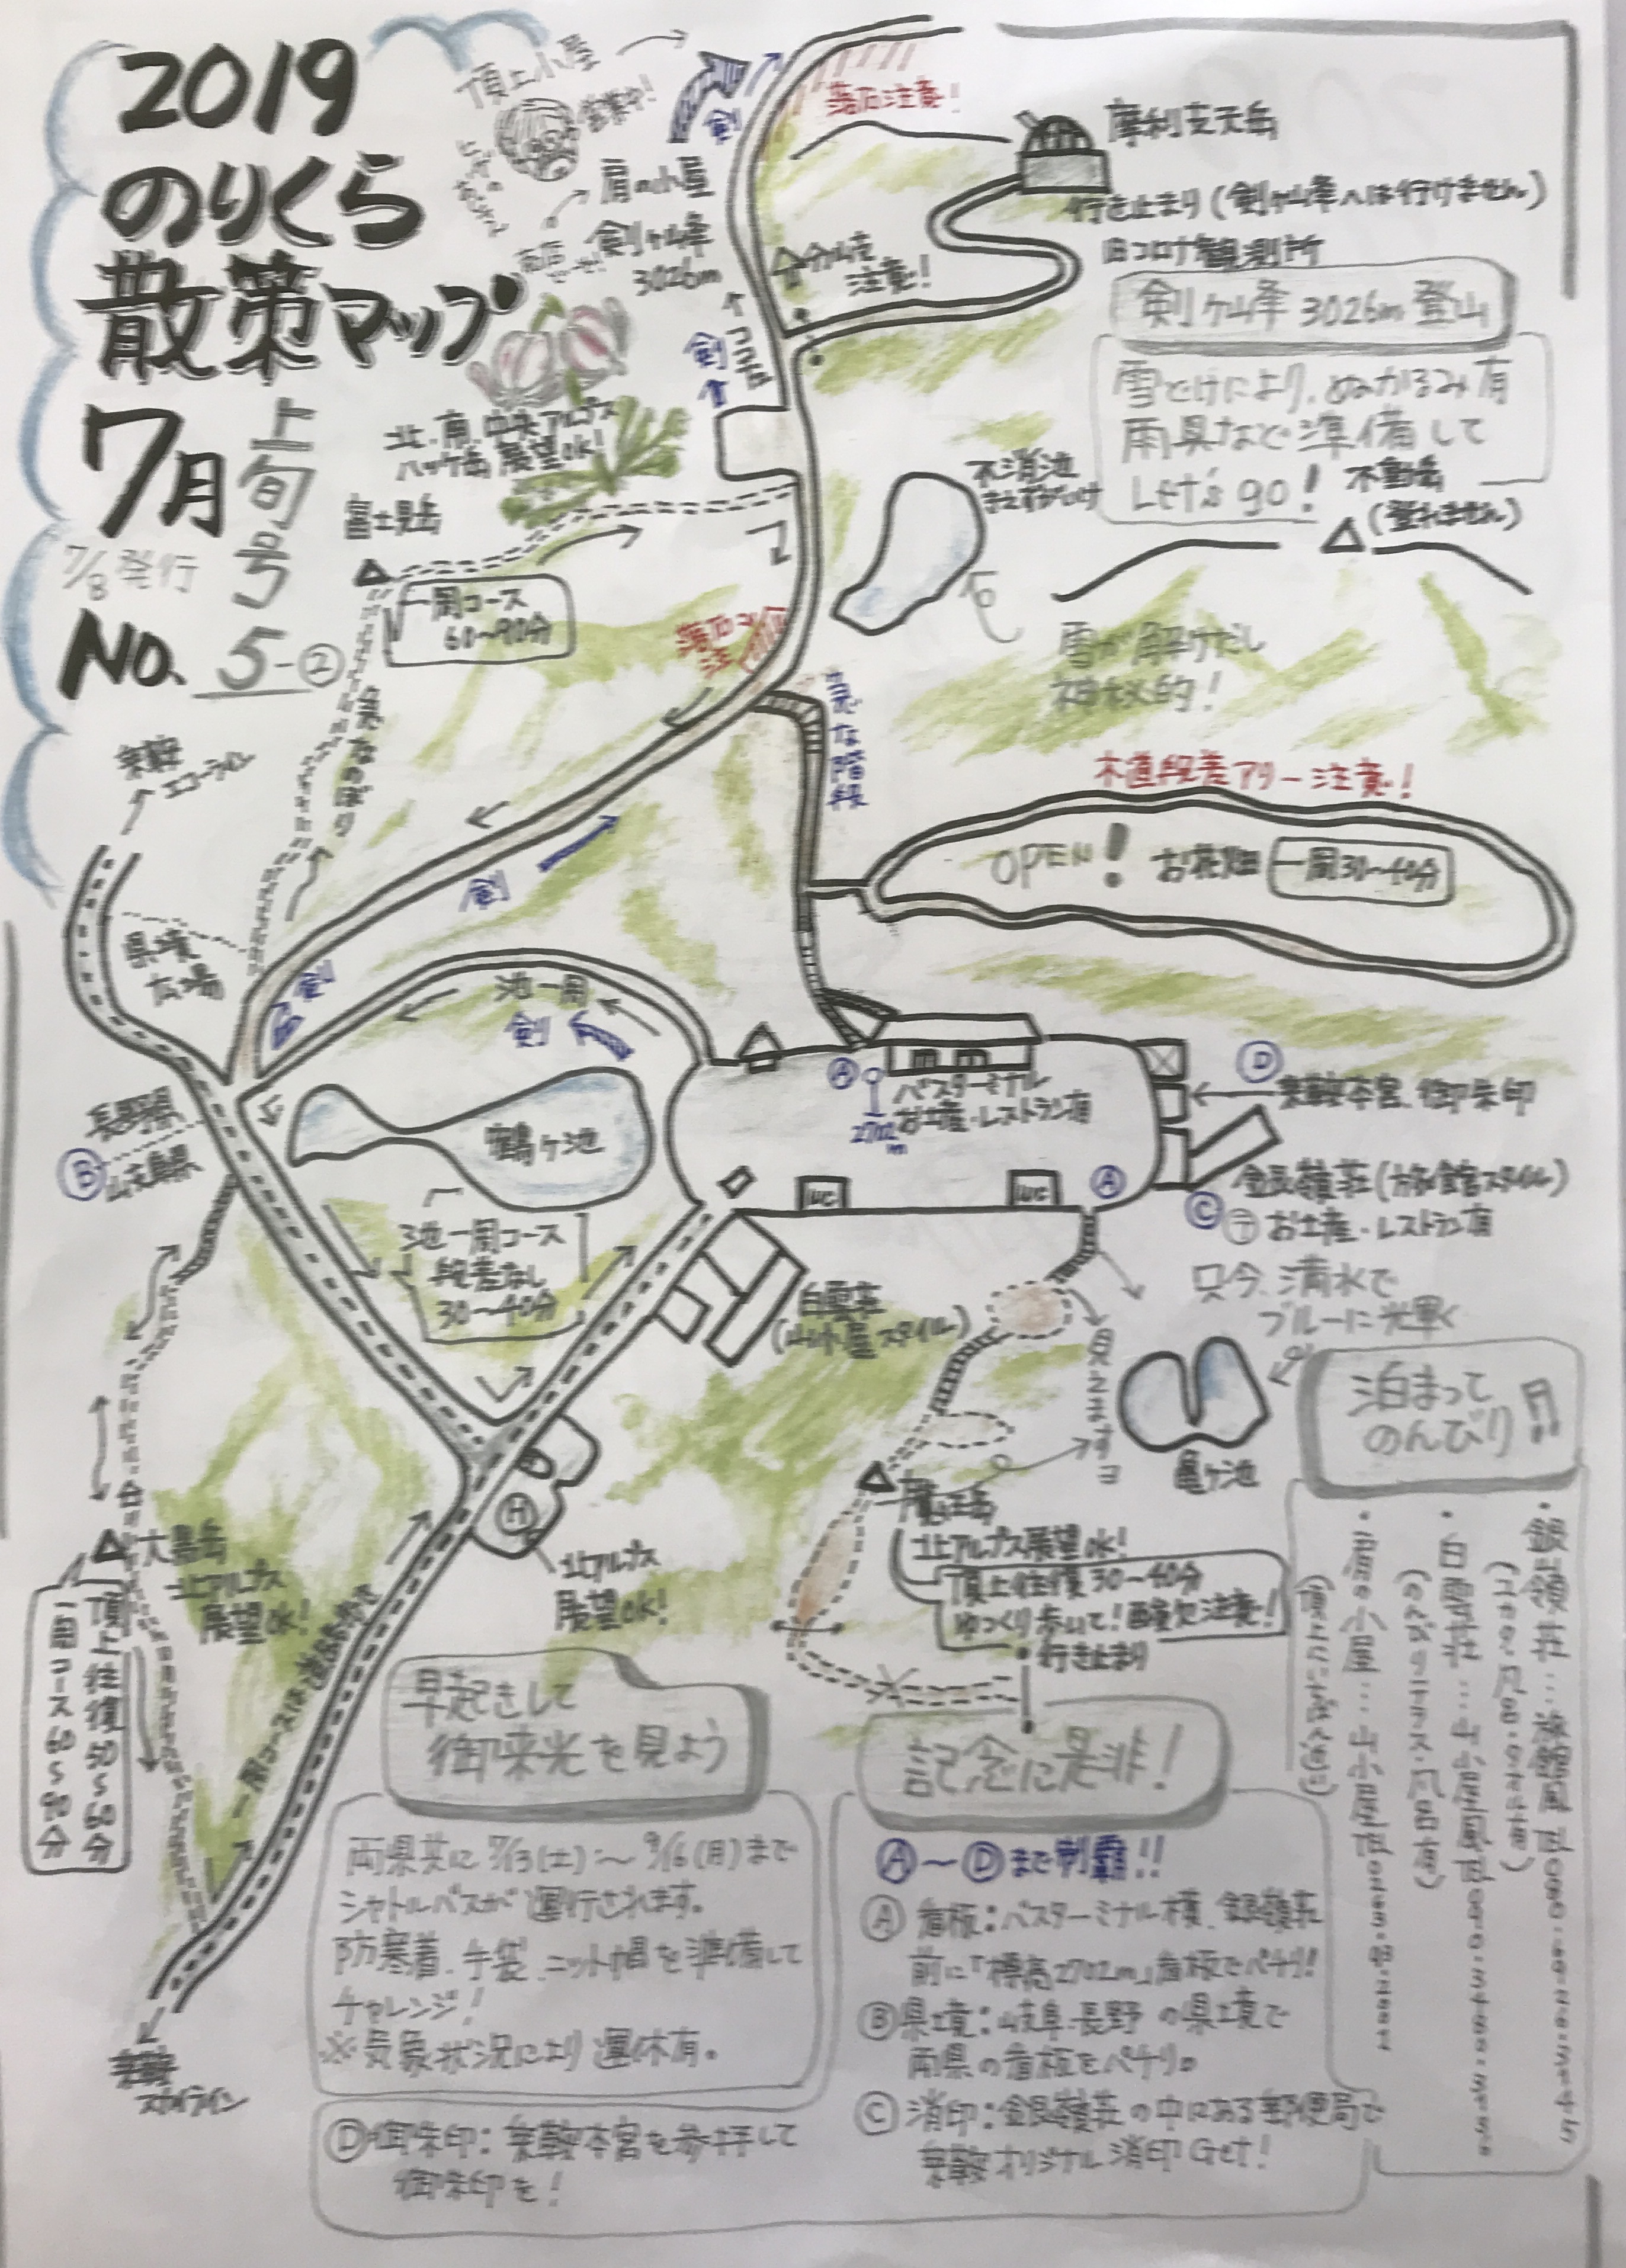 2019
のりくら
散策マップ
7月
上旬号
7/8発行
No. 5-②
頂上小屋
営業中!
肩の小屋
剣ヶ峰
3026m
剣
落石注意!
摩利支天岳
行き止まり(剣ヶ峰へは行けません)
旧コロナ観測所
分岐
注意!
剣
ココデス
剣ヶ峰 3026m 登山
雪どけにより、ぬかるみ有
雨具など準備して
Let's go!
不動岳
(登れません)
不消池
北、南、中央アルプス
八ヶ岳 展望OK!
富士見岳
一周コース
60〜90分
急なのぼり
落石
注
雪が解けだし
神秘的!
急な階段
木道段差アリー注意!
OPEN! お花畑 一周30〜40分
乗鞍
エコーライン
剣
県境
広場
剣
池一周
剣
長野県
Ⓑ
岐阜県
鶴ヶ池
Ⓐ
2702m
バスターミナル
お土産・レストラン有
Ⓓ
乗鞍本宮、御朱印
WC
WC
Ⓐ
銀嶺荘(旅館スタイル)
Ⓒ 〒 お土産・レストラン有
池一周コース
段差なし
30〜40分
白雲荘
(山小屋スタイル)
只今、清水で
ブルーに光輝く
見えますヨ
亀ヶ池
泊まって
のんびり♫
・銀嶺荘…旅館風
・白雲荘…山小屋風
(のんびりテラス・風呂有)
・肩の小屋…山小屋
魔王岳
北アルプス展望OK!
頂上往復30〜40分
ゆっくり歩いて!酸欠注意!
行き止まり
Ⓗ
北アルプス
展望OK!
大黒岳
北アルプス
展望OK!
頂上往復50〜60分
一周コース60〜90分
一周コースは道路歩き
乗鞍
スカイライン
早起きして
御来光を見よう
両県共に 7/13(土)〜9/16(月)まで
シャトルバスが運行されます。
防寒着、手袋、ニット帽を準備して
チャレンジ!
※気象状況により運休有。
記念に是非!
Ⓐ〜Ⓓまで制覇!!
Ⓐ看板:バスターミナル横、銀嶺荘
前に「標高2702m」看板でパチリ!
Ⓑ県境:岐阜・長野の県境で
両県の看板をパチリ。
Ⓒ消印:銀嶺荘の中にある郵便局で
乗鞍オリジナル消印Get!
Ⓓ御朱印:乗鞍本宮を参拝して
御朱印を!